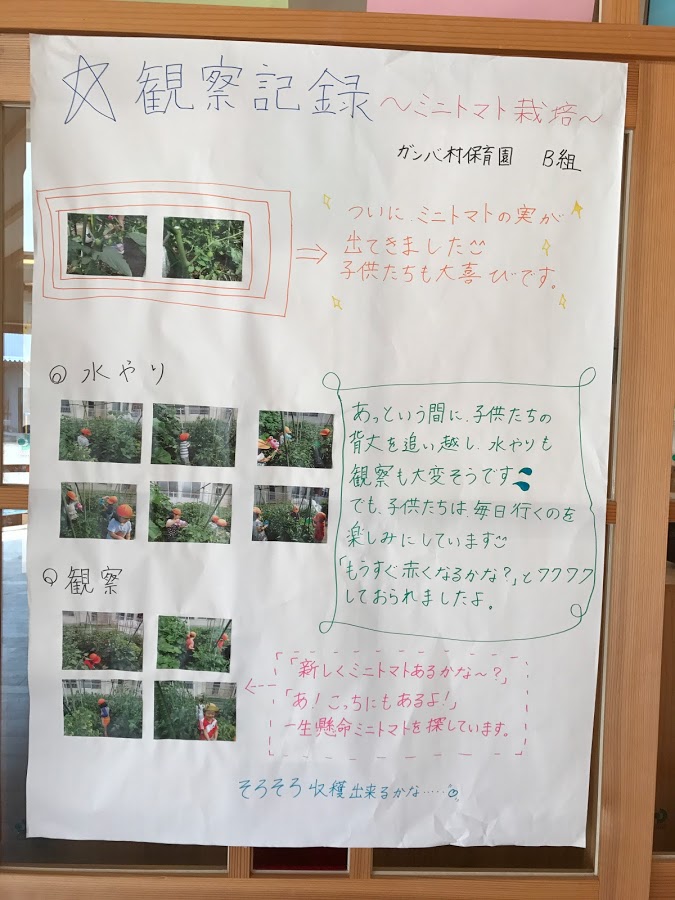 観察記録 ～ミニトマト栽培～
ガンバ村保育園 B組
ついに、ミニトマトの実が
出てきました
子供たちも大喜びです。
水やり
あっという間に、子供たちの
背丈を追い越し、水やりも
観察も大変そうです
でも、子供たちは、毎日行くのを
楽しみにしています
「もうすぐ赤くなるかな？」とワクワク
しておられましたよ。
観察
「新しくミニトマトあるかな～？」
「あ！こっちにもあるよ！」
一生懸命ミニトマトを探しています。
そろそろ収穫出来るかな……